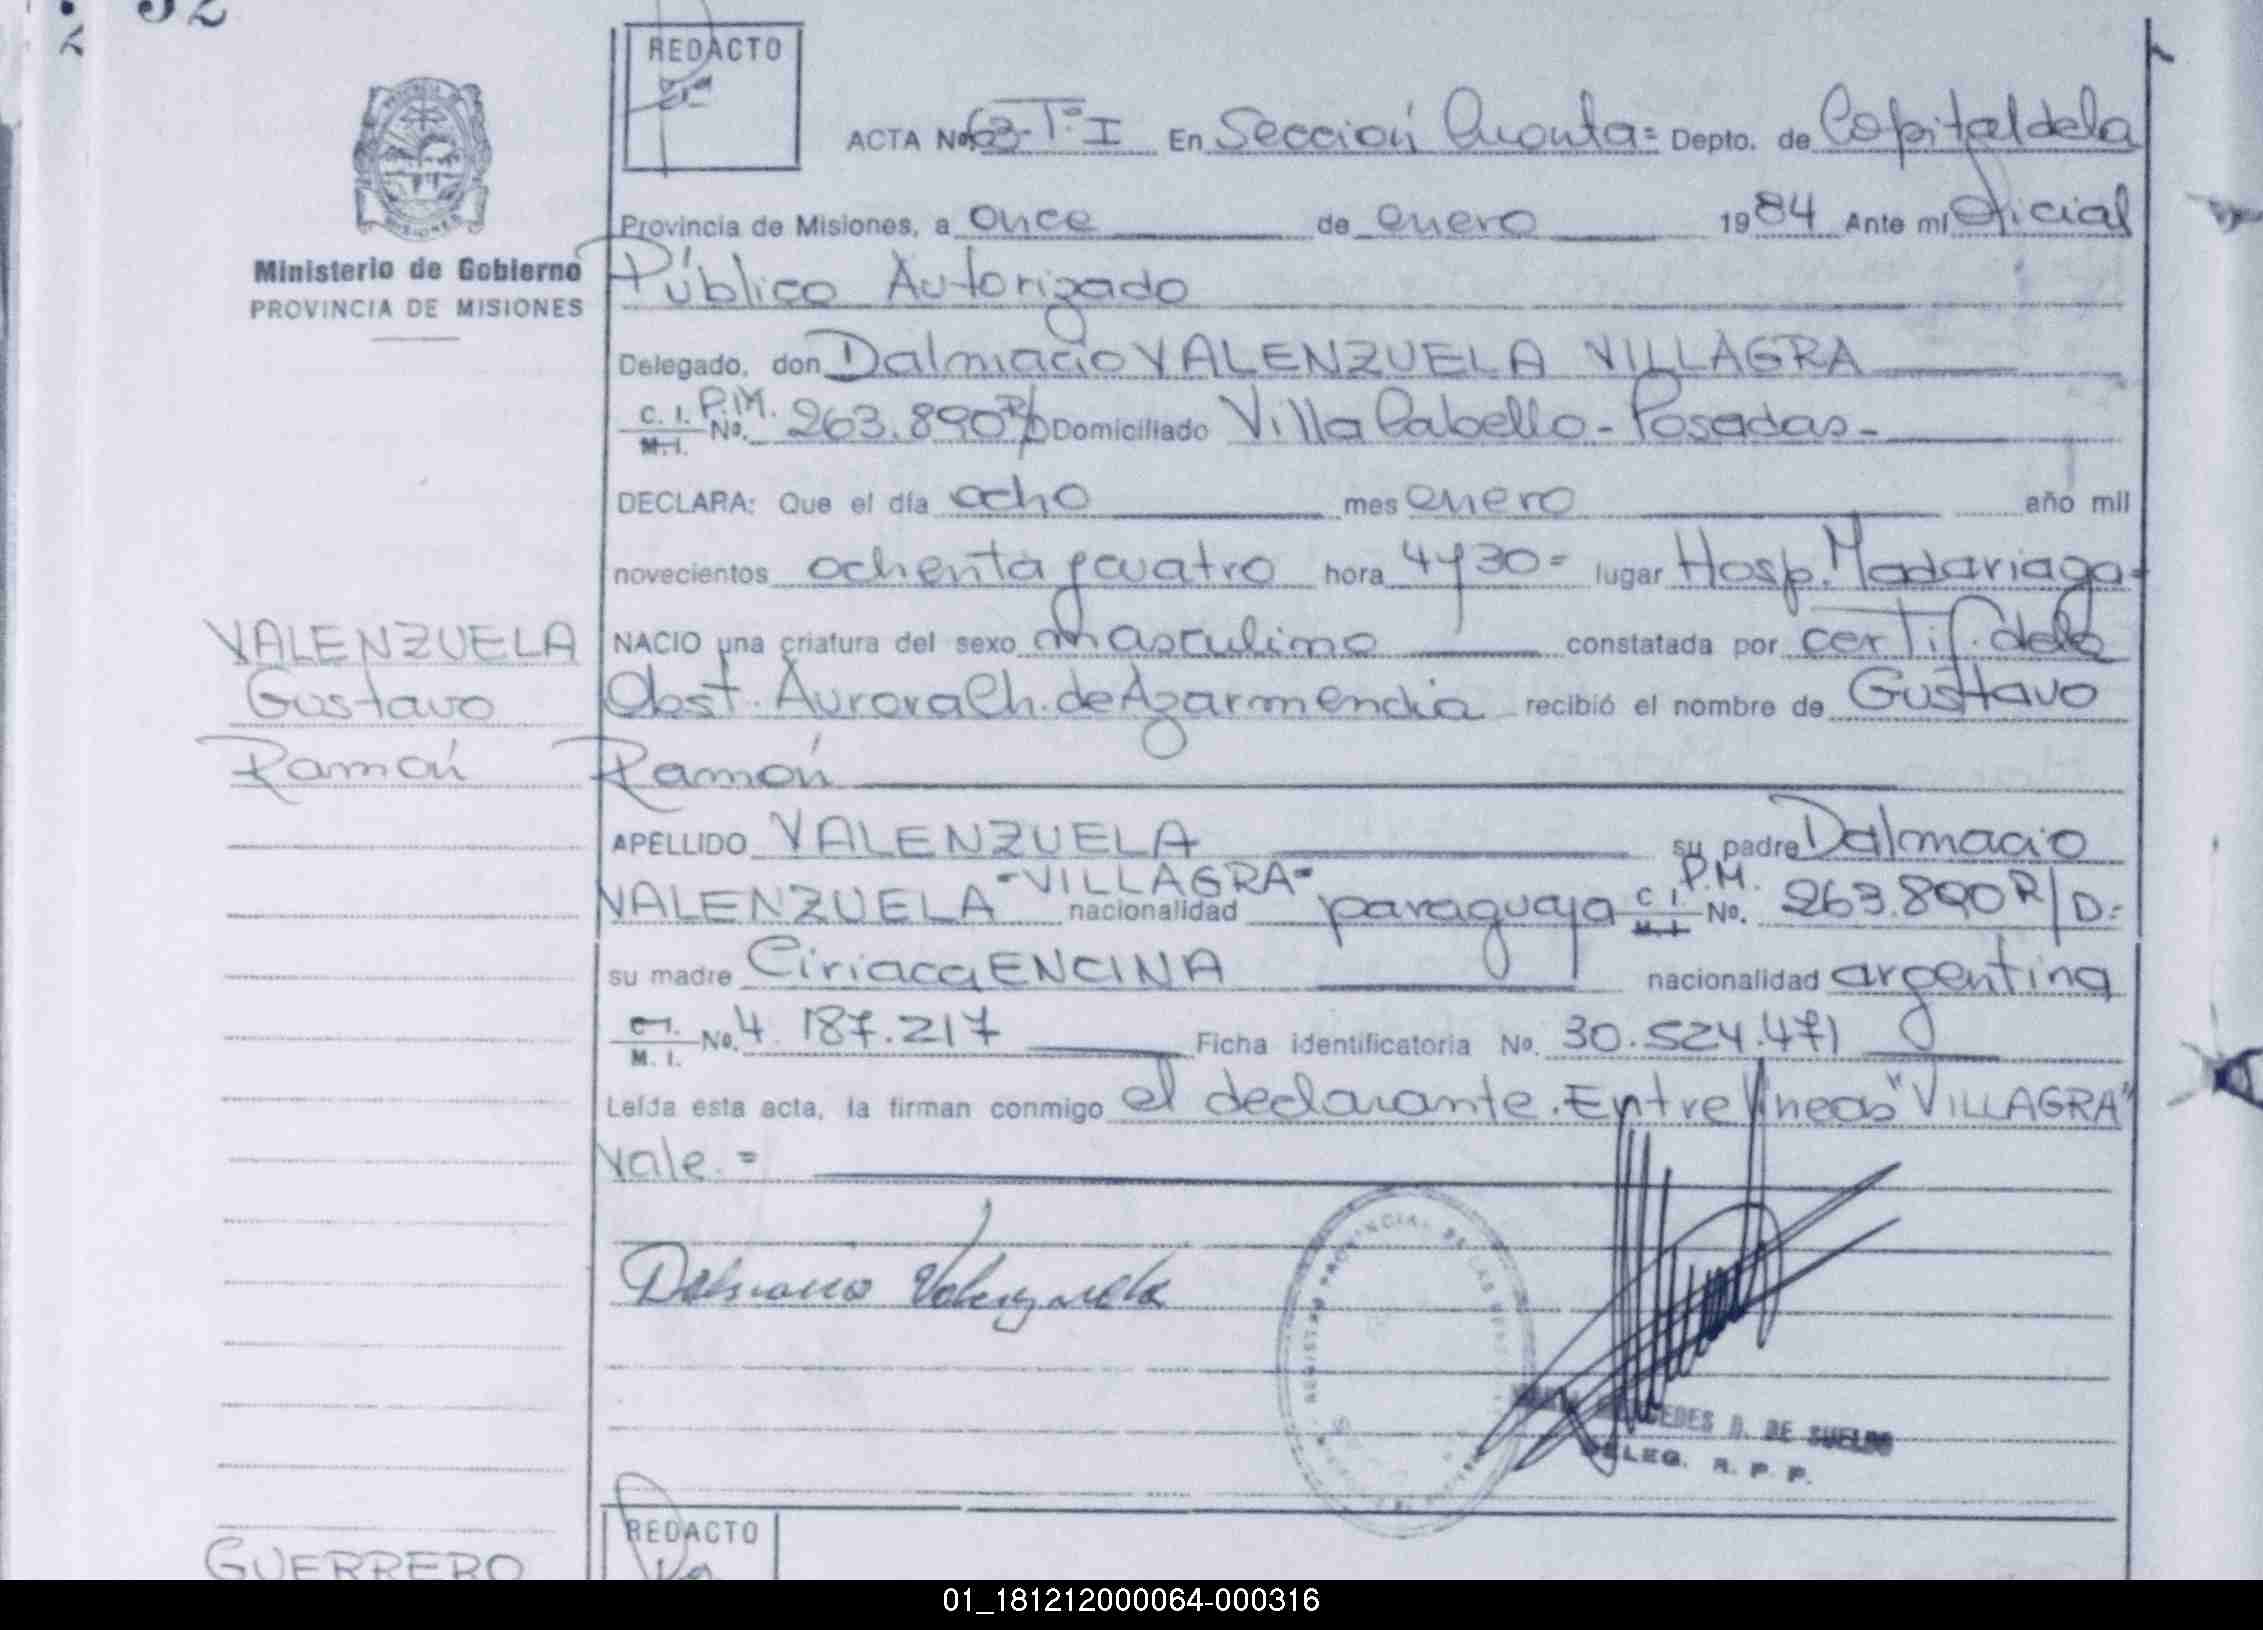 32
REDACTO
ACTA Nº 63-Tº I En Sección Cuarta= Depto. de Capital de la
Provincia de Misiones, a once de enero 1984 Ante mí Oficial
Ministerio de Gobierno
PROVINCIA DE MISIONES
Público Autorizado
Delegado, don Dalmacio VALENZUELA VILLAGRA
C. I. P.M. M. I. No. 263.890 R/D Domiciliado Villa Cabello - Posadas -
DECLARA: Que el día ocho mes enero año mil
novecientos ochenta y cuatro hora 4 y 30= lugar Hosp. Madariaga=
VALENZUELA
Gustavo
Ramón
NACIO una criatura del sexo masculino constatada por certif. de la
Obst. Aurora Ch. de Azarmendia recibió el nombre de Gustavo
Ramón
APELLIDO VALENZUELA su padre Dalmacio
VALENZUELA =VILLAGRA= nacionalidad paraguaya C. I. P.M. M. I. No. 263.890 R/D.=
su madre Ciriaca ENCINA nacionalidad argentina
C. I. M. I. No. 4.187.217 Ficha identificatoria No. 30.524.471
Leída esta acta, la firman conmigo el declarante. Entre lineas "VILLAGRA"
Vale.=
Dalmacio Valenzuela
REGISTRO PROVINCIAL DE LAS
CEDES B. DE SUELDO
DELEG. R. P. P.
REDACTO
GUERRERO
01_181212000064-000316